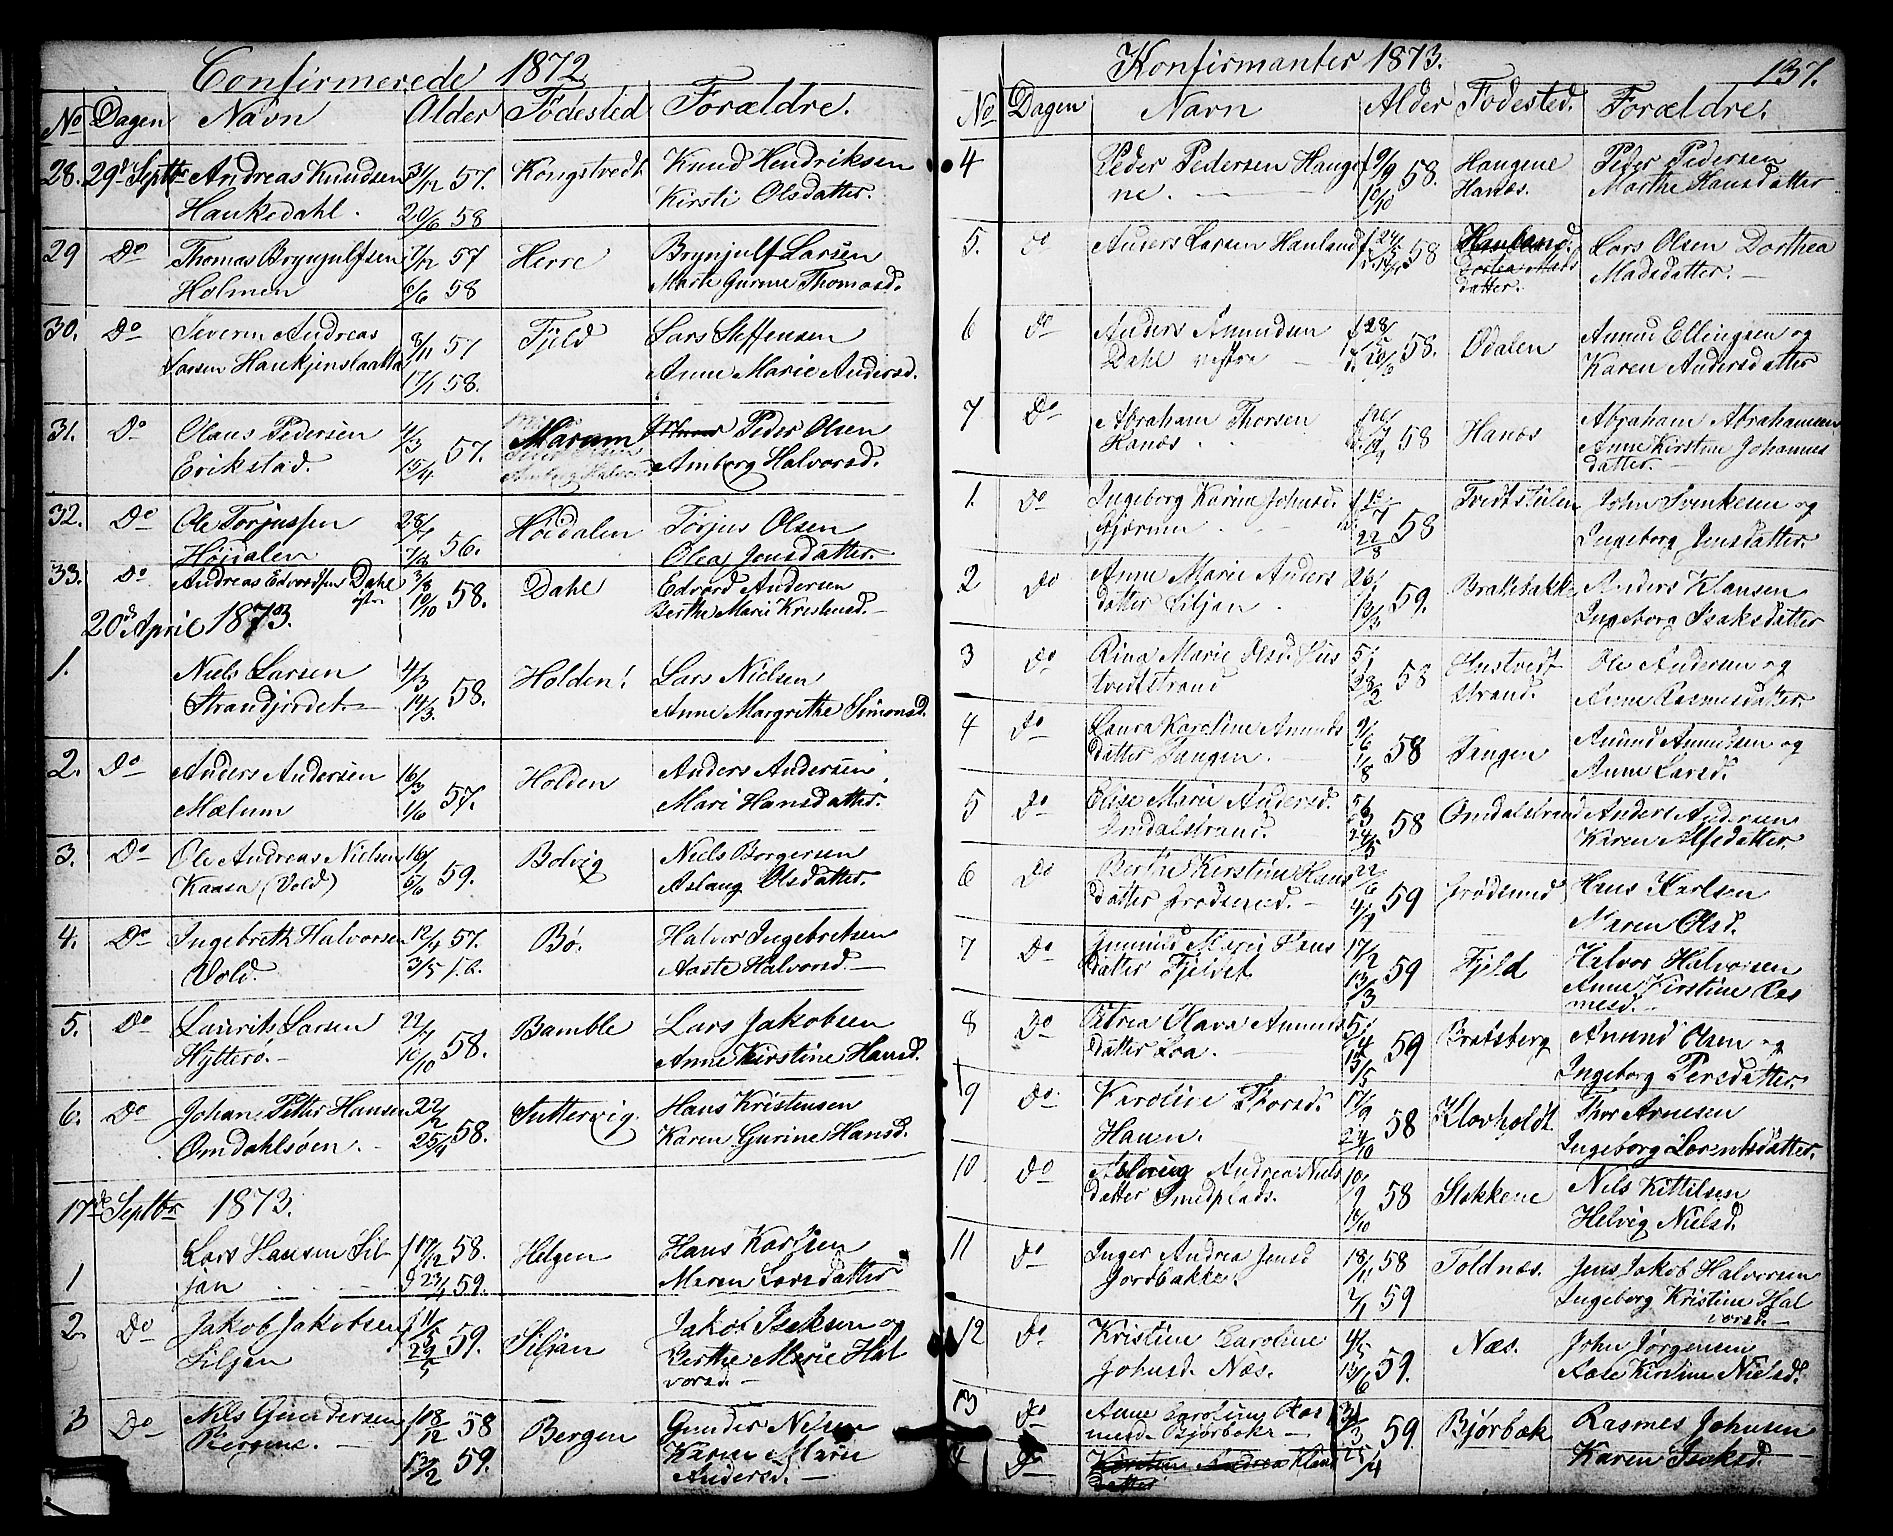 Confirmerede 1872
No Dagen Navn Alder Födested Forældre.
28. 29d Septbr Andreas Knudsen 31/12 57. Kongstvedt Knud Hendriksen
Haukedahl. 20/6 58 Kirsti Olsdatter.
29 Do Thomas Brynjulfsen 7/12 57 Herre Brynjulf Larsen
Holmen 6/6 58 Marte Gurine Thomasd.
30. Do Severin Andreas 8/11 57 Fjeld Lars Steffensen
Larsen 17/1 58. Anne Marie Andersd.
31. Do Olaus Pedersen 4/3 57. Marum Peder Olsen
Erikstad. 15/4 Amberg Halvorsd.
32. Do Ole Torjussen 28/ 56. Höidalen Torjus Olsen
Höjdalen Olea Jensdatter.
33. Do Andreas Edvardsen Dahl 3/8 58. Dahl Edvard Andersen
10/10 Berthe Marie Kristensd.
20d April 1873.
1. Niels Larsen 4/3 58. Holden! Lars Nielsen
Strandjordet. 14/3 Anne Margrethe Simonsd.
2. Do Anders Andersen 16/3 57. Holden Anders Andersen
Mælum 1/6 Mari Hansdatter.
3. Do Ole Andreas Nielsen 16/ 59. Bolvig Niels Borgersen
Kaasa (Vold) 5/6 Aslaug Olsdatter.
4. Do Ingebreth Halvorsen 12/4 57. Bø. Halvor Ingebretsen
Vold. 3/5 Aaste Halvorsd.
5. Do Laurits Larsen 22/ 58. Bamble Lars Jakobsen
Hytterø. 10/10 Anne Kirstine Hansd.
6. Do Johan Petter Hansen 22/2 58. Futtervig Hans Kristensen
Omdahlsøen. 25/4 Karen Gurine Hansd.
17de Septbr 1873.
1 Lars Hansen Sil- f 17/12 58. Helgen Hans Karlsen
jan 23/1 59. Maren Larsdatter
2. Do Jakob Jakobsen 59. Siljan Jakob Isaksen og
Siljan Berthe Marie Hal
vorsd.
3 Do Nils Gundersen f 18/12 58 Bergen Gunder Nilsen
Bergene. 13/2 59. Karen Marie
Andersd.
Konfirmanter 1873. 137.
No Dagen Navn Alder Fodested. Forældre.
4 Peder Pedersen Hauge f 9/9 58. Haugene Peder Pedersen
ne. 10/10 Hanæs. Marthe Hansdatter
5. do Anders Larsen Hauland 58 Hauland Lars Olsen Dorthea
Dortea Mads Madsdatter.
datter.
6 do Anders Amundsen f 28/ 58. Ødalen Amund Ellingsen og
Dahl vestre Karen Andersdatter
7 Do Abraham Thorsen 58 Hanæs Abraham Abrahamsen
Hanæs Anne Kirstine Johannes
datter.
1. Do Ingeborg Karine Johnsd. 58 Tvedtstulen John Svenkesen og
22/8 Ingeborg Jensdatter.
2 Do Anne Marie Anders 26/ 59. Bratsbakke Anders Klausen
datter Siljan 13/3 Ingeborg Isaksdatter
3 Do Rina Marie Olsd. Hus 5/1 58 Hustvedt Ole Andersen og
tvedtstrand 23/2 strand. Anne Rasmusdatter.
4 Do Laura Karoline Amunds 9/6 58 Tangen Amund Amundsen og
datter Tangen. 1/8 Anne Larsd.
5 Do Elise Marie Andersd. 5/3 58 Omdalstrand Anders Andersen
Omdalstrand. 24/5 Karen Alfsdatter
6 Do Berthe Kirstine Hans 22/6 59 Frödsund Hans Karlsen
datter Frødsund. 4/9 Maren Olsd.
7 Do Gunnild Marie Hans 17/2 59 Fjeld Halvor Halvorsen
datter Fjeldet 13/3 Anne Kirstine Ras
mesd.
8 Do Petrea Olava Amunds 5/4 59 Bratsberg Amund Olsen og
datter Loa. 15/5 Ingeborg Persdatter.
9 Do Karoline Thorsd. 17/9 58 Klovholdt Thor Arnesen
Hauen. 24/10 Ingeborg Lorentsdatter.
10 Do Aslaug Andrea Niels 10/9 58 Stokkene Nils Kittilsen
datter Smedplads. 11/10 Helvig Nielsd.
11 Do Inger Andrea Jensd 18/11 58 Toldnæs. Jens Jakob Halvorsen
Jordbakken 2/1 59 Ingeborg Kristine Hal
vorsd.
12 Do Kristine Caroline 4/5 59. Næs. John Jørgensen
Johnsd. Næs. 13/6 Aase Kirstine Nielsd.
13 Do Anne Caroline Ras 59. Bjørbæk Rasmes Johnsen
mesd. Bjørbæk Karen Isaksd.
14 Do Kirstine Andrea Klaus 25/4
datter